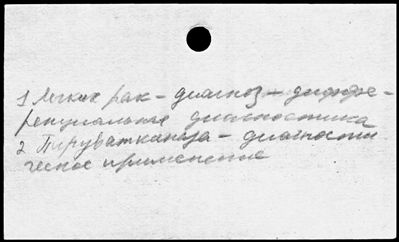 1 Легких рак – диагноз – диффе-
ренциальная диагностика
2 Пируваткиназа – диагности
ческое применение